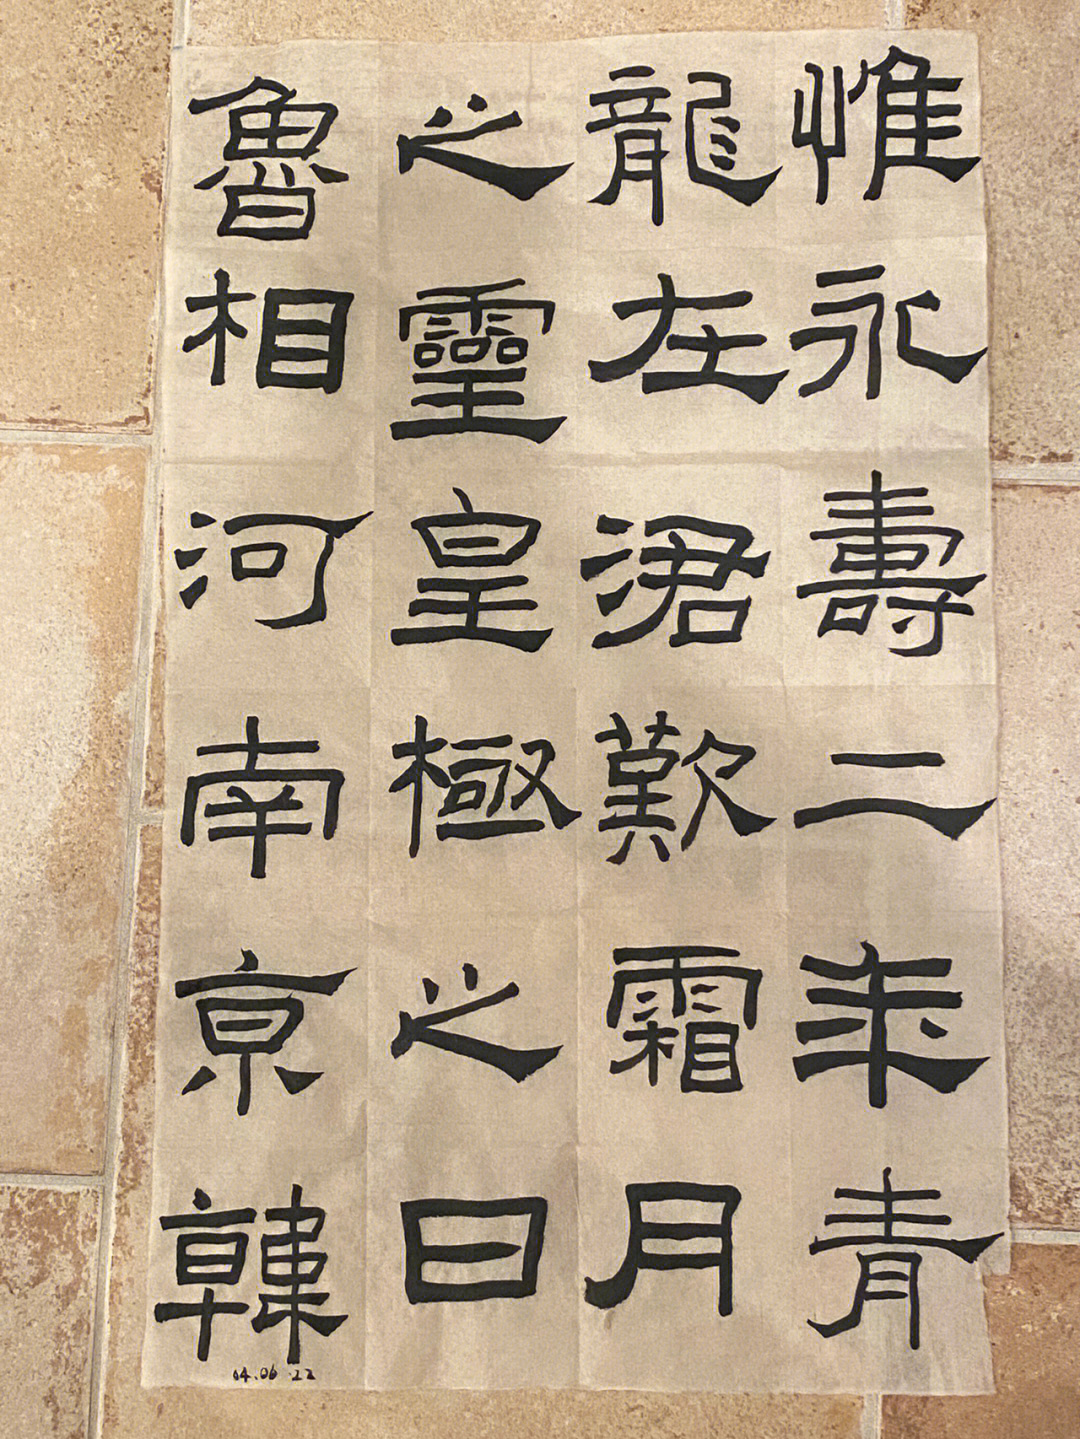 惟永壽二年青
龍在涒歎霜月
之靈皇極之日
魯相河南京韓
04.06.22